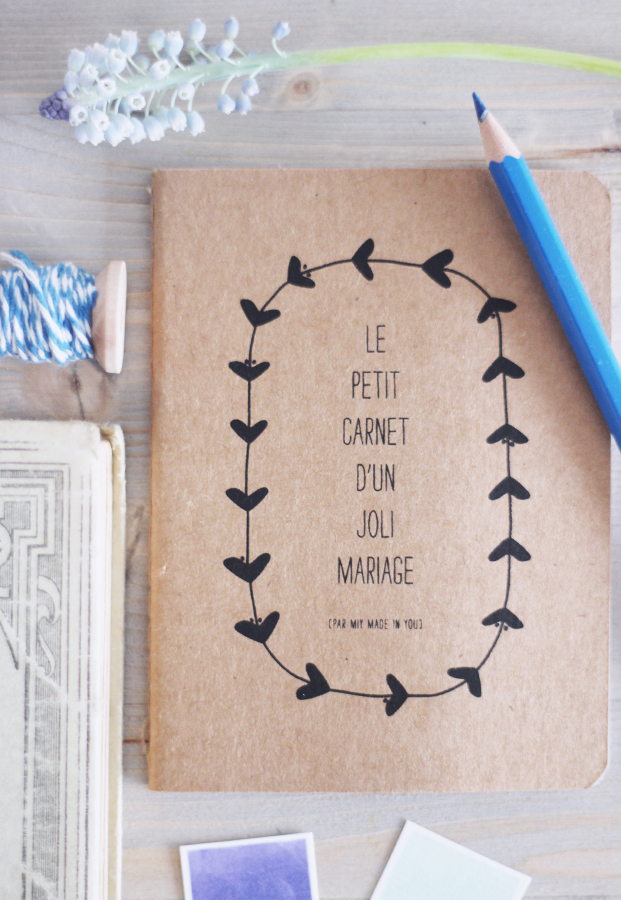 LE
PETIT
CARNET
D'UN
JOLI
MARIAGE
[PAR MIY MADE IN YOU]